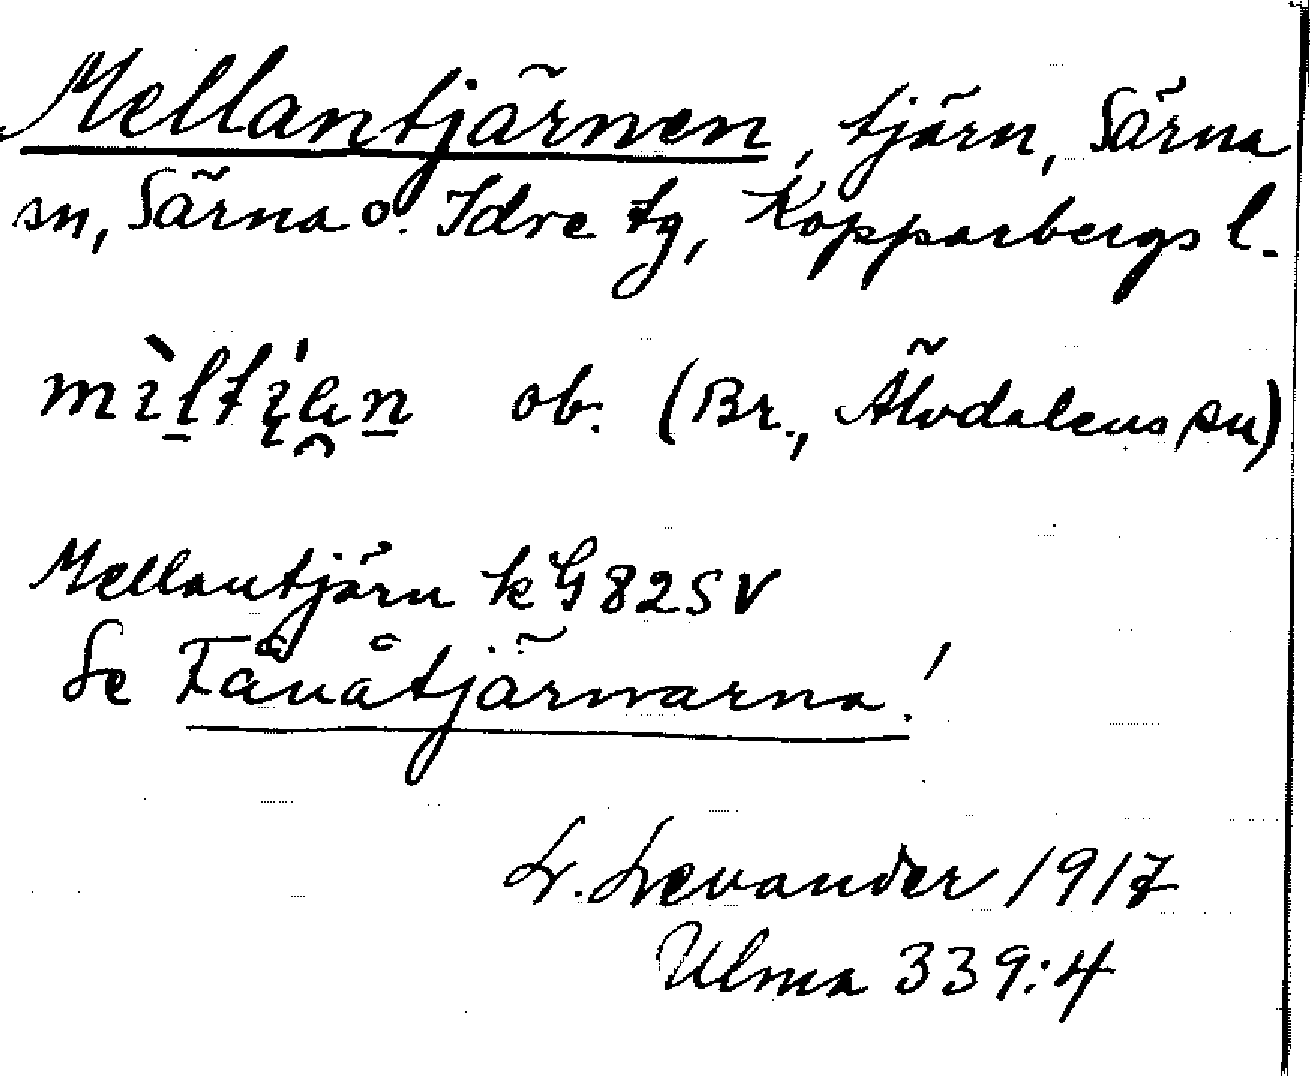 Mellantjärnen, tjärn, Särna
sn, Särna o. Idre tg, Kopparbergs l.
ob. (Br., Älvdalens sn)
Mellantjärn k G 82 SV
Se Fånåtjärnarna!
L. Levander 1917
Ulma 339:4